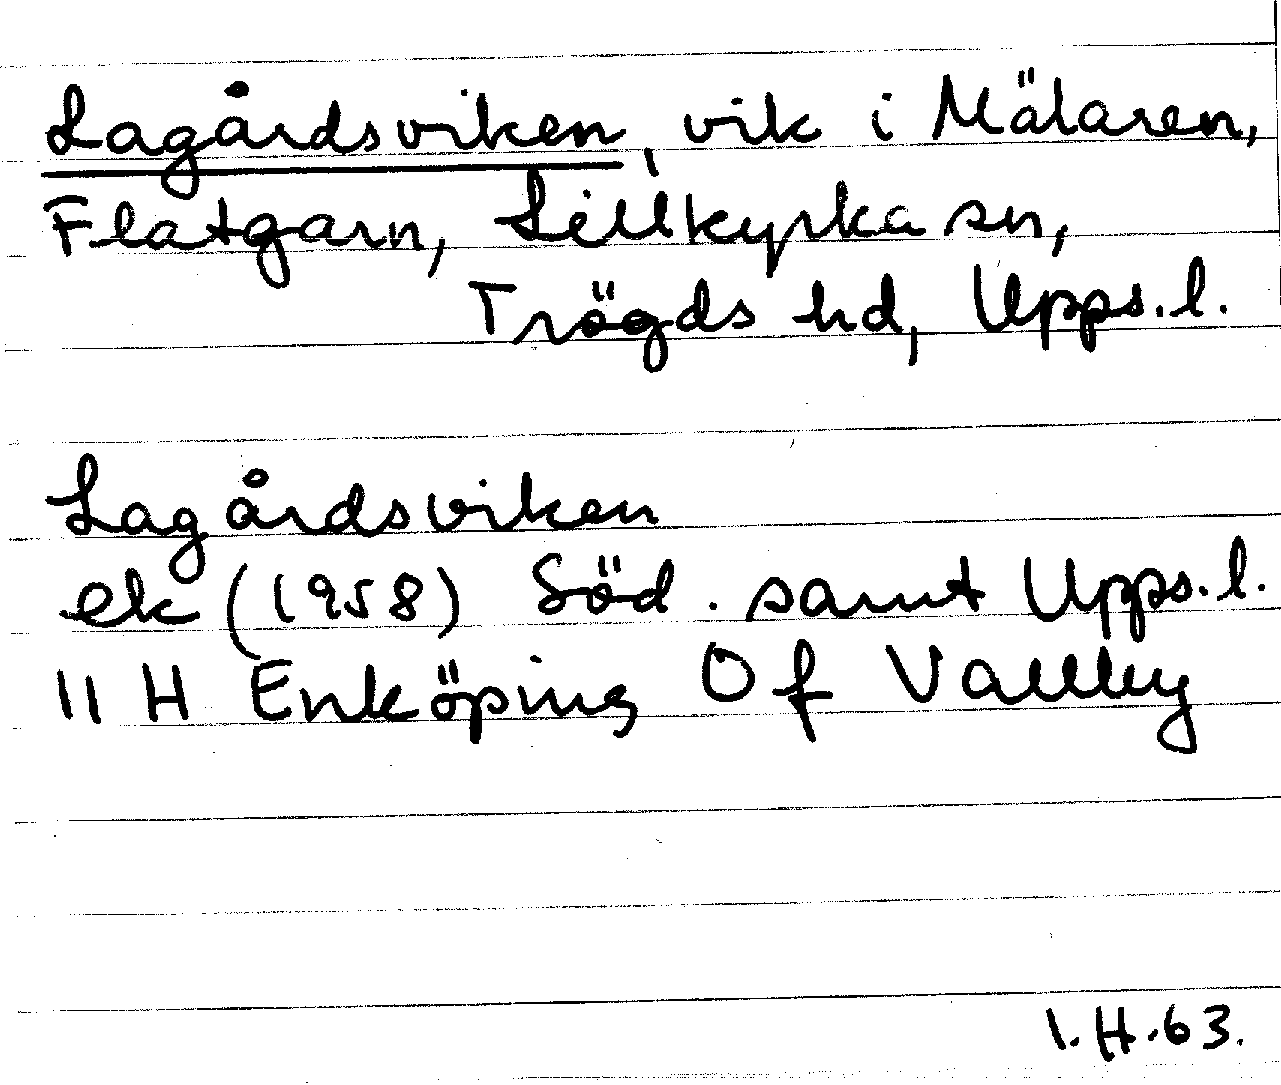 Lagårdsviken, vik i Mälaren,
Flatgarn, Lillkyrka sn,
Trögds hd, Upps. l.
Lagårdsviken
ek (1958) Söd. samt Upps. l.
11 H Enköping Of Vallby
I. H. 63.